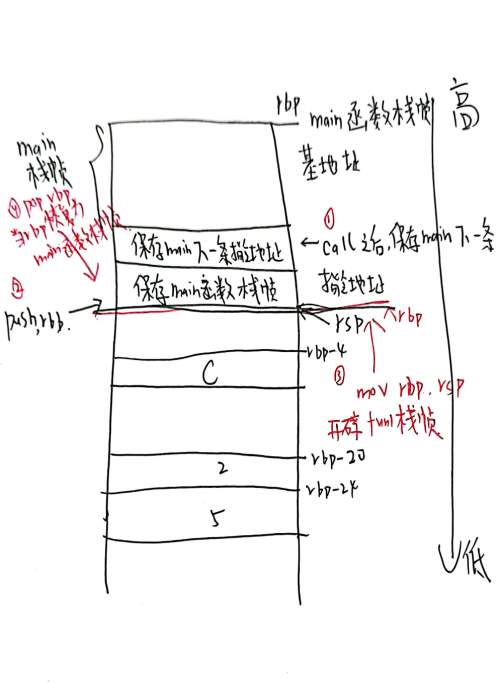 rbp
高
main函数栈帧
基地址
main
栈帧
④ pop rbp,
将rbp恢复为
main函数栈帧
①
保存main下一条指令地址
←call之后,保存main下一条
指令地址
②
push,rbb.
保存main函数栈帧
rsp
rbp
rbp-4
C
③
mov rbp.rsp
开辟fun1栈帧
rbp-20
2
rbp-24
5
低